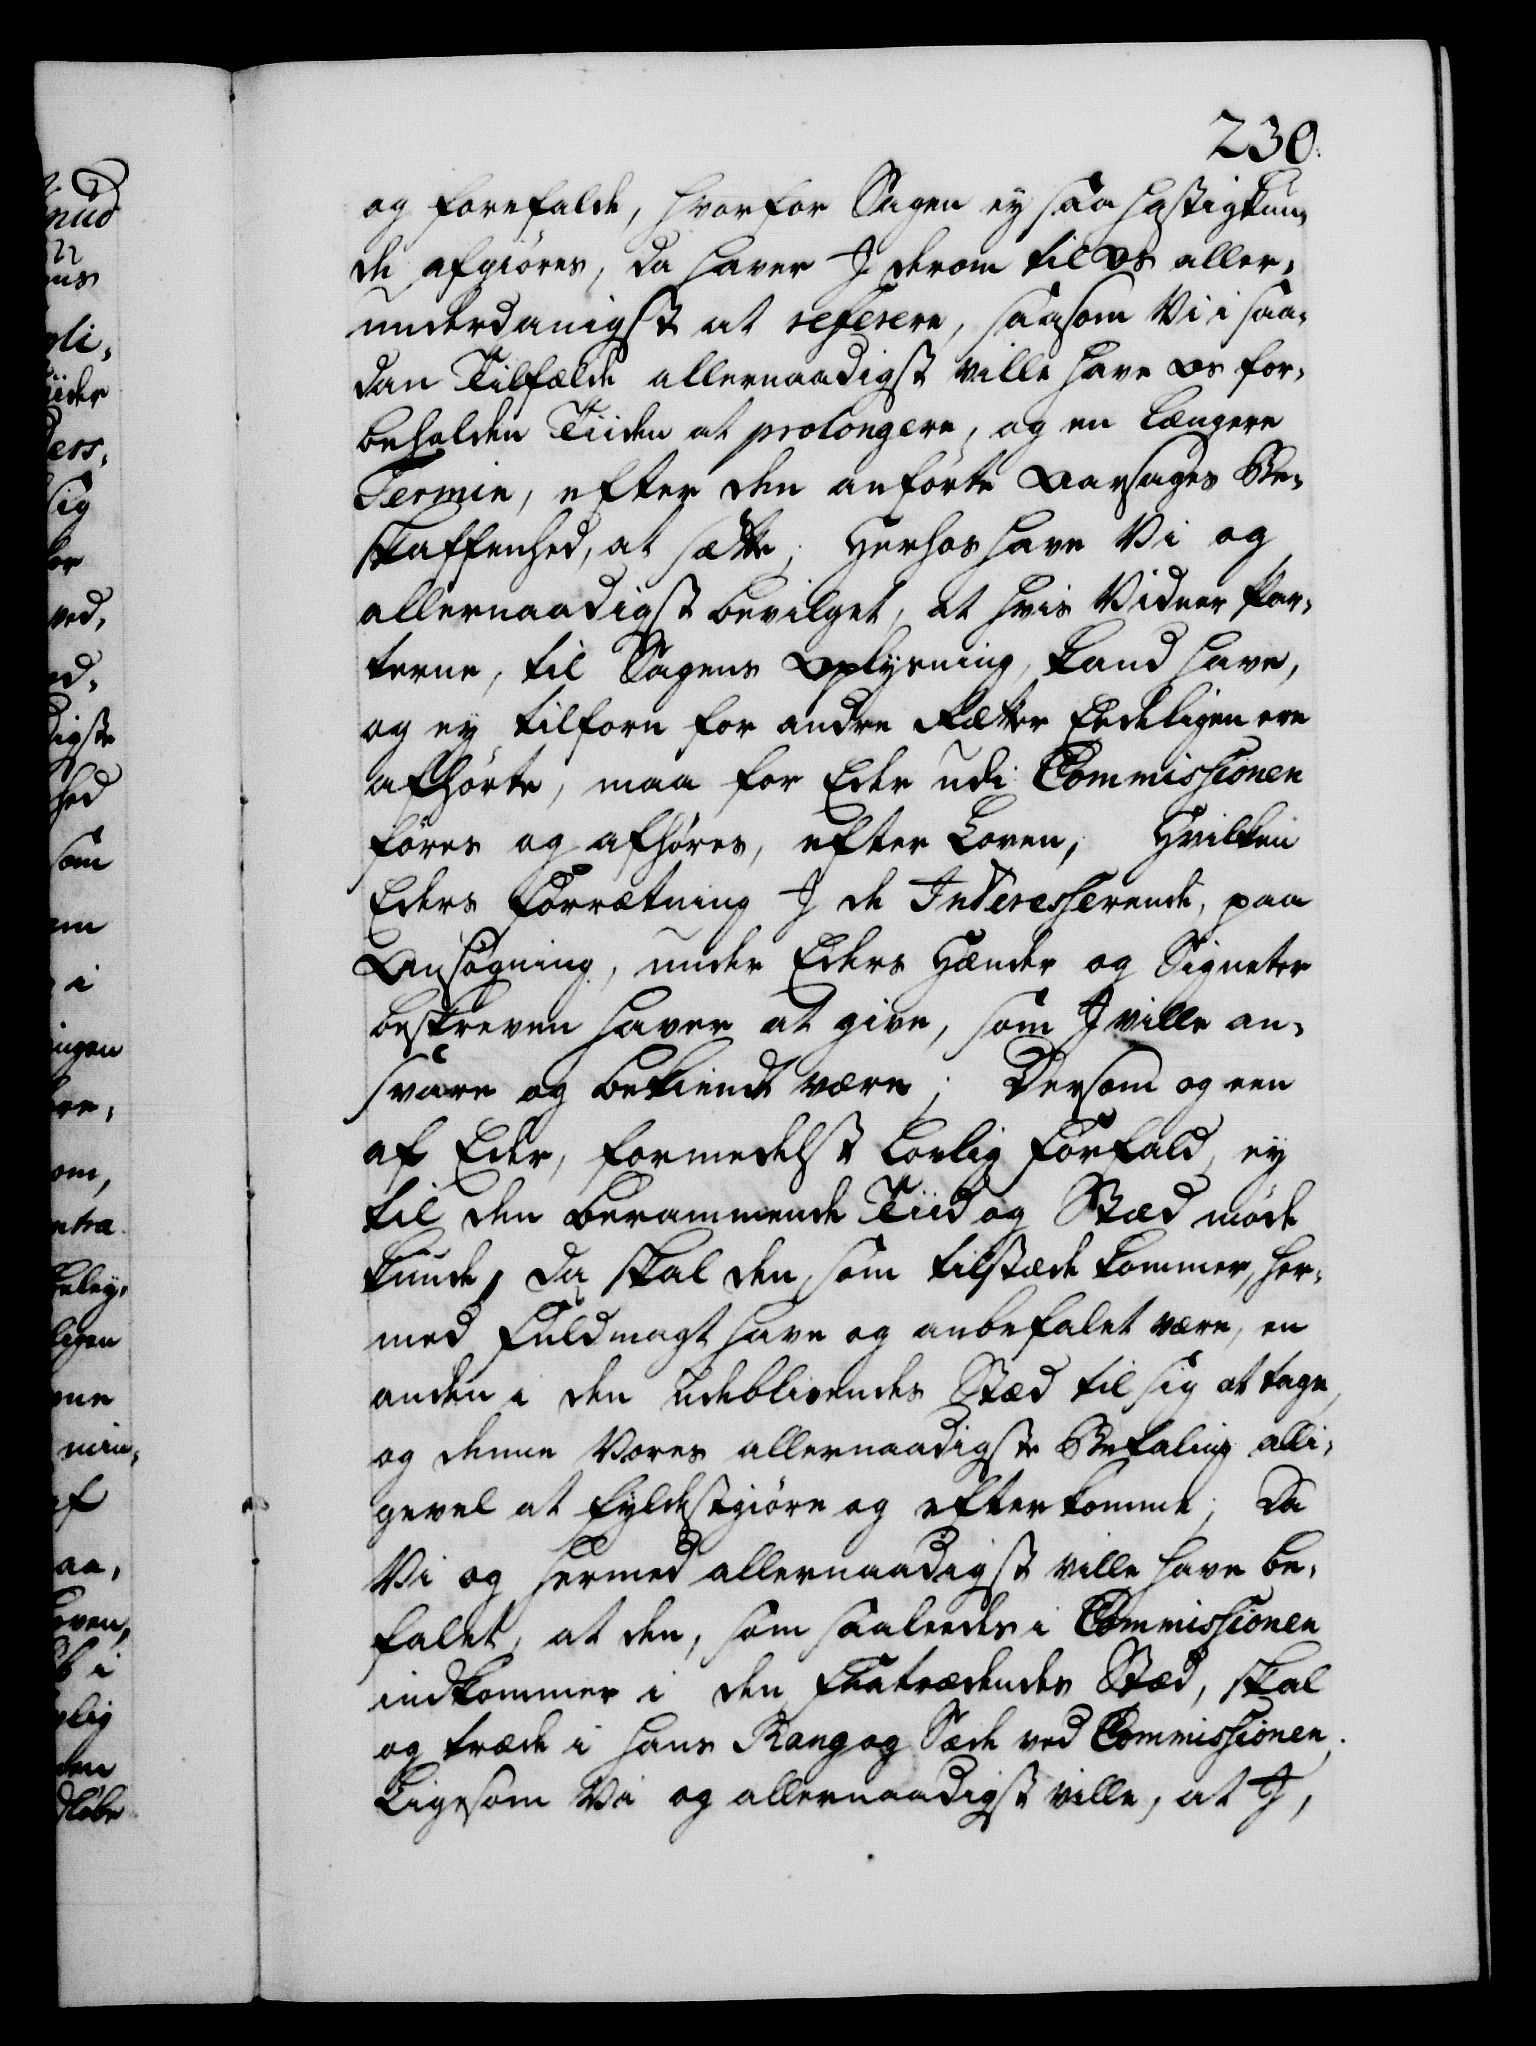 230.
og forefalde, hvorfor Sagen ey saa hastig kun-
de afgiøres, da haver J derom til os aller-
underdanigst at referere, saasom Vi i saa-
dan Tilfælde allernaadigst ville have os for-
beholden Tiiden at prolongere, og en længere
Termin, efter den anførte Aarsages Be-
skaffenhed, at sætte; Herhos have Vi og
allernaadigst bevilget, at hvis Vidner Par-
terne, til Sagens Oplysning, kand have,
og ey tilforn for andre Rætter Eedeligen ere
afhørte, maa for Eder udi Commissionen
føres og afhøres, efter Loven; Hvilken
Eders Forrætning J de Interesserende, paa
Ansøgning, under Eders Hænder og Signeter
beskreven haver at give, som J ville an-
svare og bekiendt være; Dersom og een
af Eder, formedelst Lovlig Forfald, ey
til den berammende Tiid og Stæd møde
kunde, da skal den, som tilstæde kommer, her-
med Fuldmagt have og anbefalet være, en
anden i den Udeblivendes Stæd til sig at tage,
og denne Vores allernaadigste Befaling alli-
gevel at fyldestgiøre og efterkomme; Da
Vi og hermed allernaadigst ville have be-
falet, at den, som saaleedes i Commissionen
indkommer i den fratrædendes Stæd, skal
og træde i hans Rang og Sæde ved Commissionen.
Ligesom Vi og allernaadigst ville, at J,